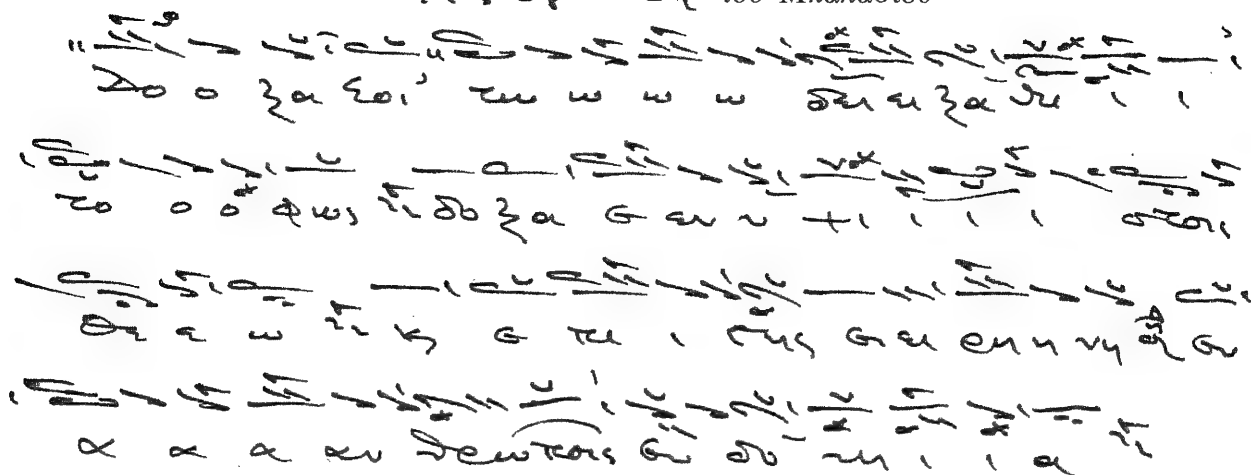 Δο ο ξα σοι τω ω ω ω δει ει ξα τι ι ι
το ο ο φως δο ξα ε εν υ ψι ι ι ι στοις
Θε ε ω ϗ ε πι ι γης ει ει ρη η νη εν
α α α αν θρωποις ευ δο κι ι ι α